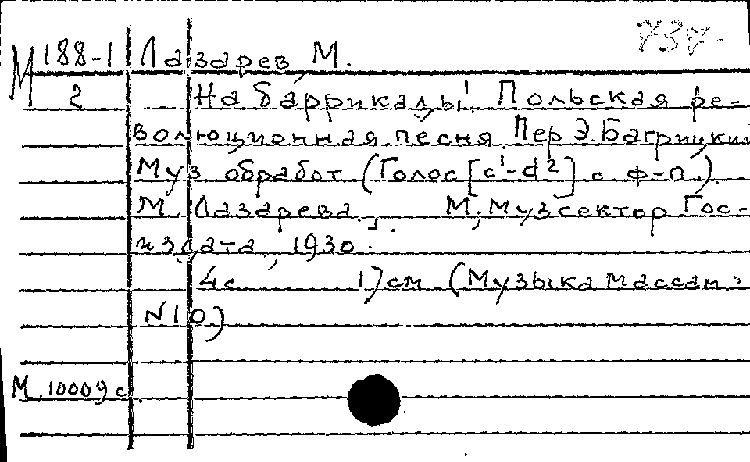 737.
М 188-1 Лазарев, М.
2 На баррикады! Польская ре-
волюционная песня. Пер Э. Багрицкий
Муз обработ (Голос [c¹-d²] с ф-п.)
М. Лазарева. М., Музсектор Гос-
издата, 1930.
4с. 17см (Музыка массам:
N10)
М 10009 с.